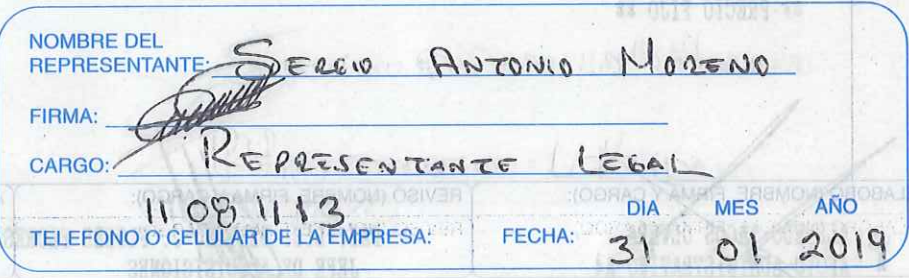 NOMBRE DEL
REPRESENTANTE: SERGIO ANTONIO MORENO
FIRMA:
CARGO: REPRESENTANTE LEGAL
11081113
TELEFONO O CELULAR DE LA EMPRESA:
DIA MES AÑO
FECHA: 31 01 2019